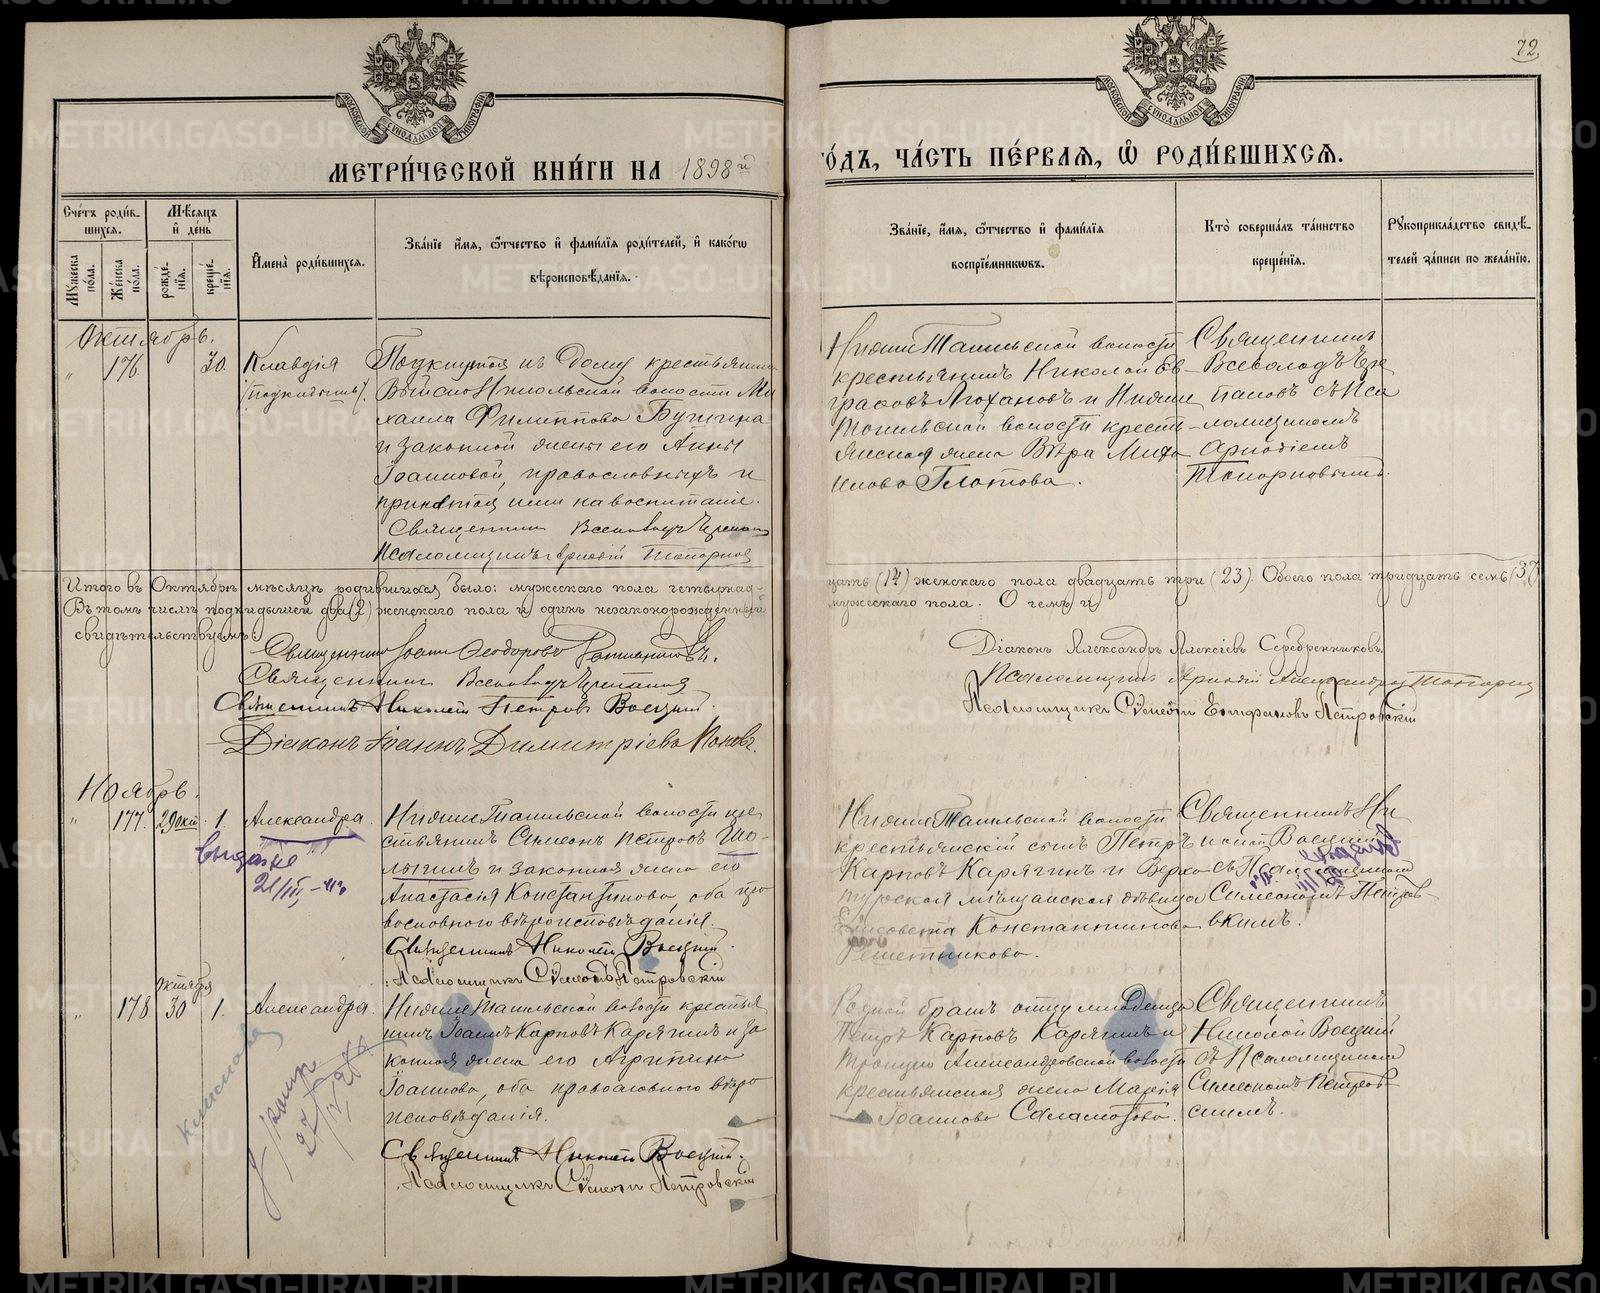 72.
МЕТРИ́ЧЕСКОЙ КНИ́ГИ НА 1898й
ГО́ДЪ, ЧА́СТЬ ПЕ́РВАЯ, Ѽ РОДИ́ВШИХСЯ.
Сче́тъ роди́в-
шихся.
Мꙋ́жеска по́ла.
Же́нска по́ла.
Мѣ́сяцъ и де́нь
рожде́-
нїя.
креще́-
нїя.
И҆мена̀ роди́вшихся.
Зва́нїе и҆́мя, ѻ҆́тчество и҆ фами́лїя роди́телей, и҆ како́гѡ
вѣроисповѣ́данїя.
Зва́нїе, и҆́мя, ѻ҆́тчество и҆ фами́лїя
воспрїе́мникѡвъ.
Кто̀ соверша́лъ та́инство
креще́нїя.
Рꙋкоприкла́дство свидѣ́-
телей за́писи по жела́нїю.
Октябрь.
" 176 30. Клавдія
(подкидышъ).
Подкинутая къ дому крестьянина
Михаила Филиппова
и законной жены его Анны
Іоанновой, православныхъ и
принятая ими на воспитаніе.
Священникъ Всеволодъ
Псаломщикъ Аркадій Топорковъ
Нижне Тагильской волости
крестьянинъ Николай Ев-
графовъ и Нижне
Тагильской волости кресть-
янская жена Вѣра Миха-
илова Глотова.
Священникъ
Всеволодъ
съ Пса-
ломщикомъ
Аркадіемъ
Топорковымъ.
Итого въ Октябрѣ мѣсяцѣ родившихся было: мужескаго пола четырнад-
цать (14) женскаго пола двадцать три (23). Обоего пола тридцать семь (37)
Въ томъ числѣ подкидышей два (2) женскаго пола и одинъ незаконорожденный
мужескаго пола. О чемъ и
свидѣтельствуемъ:
Священникъ Іоаннъ Ѳеодоровъ
Священникъ Всеволодъ
Священникъ Николай Петровъ Воецкій.
Діаконъ Іоаннъ Димитріевъ Поповъ.
Діаконъ Александръ Алексіевъ Серебренниковъ.
Псаломщикъ Аркадій Александровъ
Псаломщикъ Сѵмеонъ Епифановъ Петровскій
Ноябрь.
" 177. 29 окт. 1. Александра.
Выдано
21/III
Нижне Тагильской волости кре-
стьянинъ Симеонъ Петровъ Шо-
лыгинъ и законная жена его
Анастасія Константинова, оба пра-
вославного вѣроисповѣданія.
Священникъ Николай Воецкій.
Псаломщикъ Сѵмеонъ Петровскій
Нижне Тагильской волости
крестьянскій сынъ Петръ
Карповъ Карягинъ и Верхо-
турская мѣщанская дѣвица
Елисавета Константинова
Решетникова.
Священникъ Ни-
колай Воецкій
съ Псаломщикомъ
Симеономъ Петров-
скимъ.
" 178 октября 30 1. Александра.
Нижне Тагильской волости крестья-
нинъ Іоаннъ Карповъ Карягинъ и за-
конная жена его Агрипина
Іоаннова, оба православного вѣро-
исповѣданія.
Священникъ Николай Воецкій.
Псаломщикъ Сѵмеонъ Петровскій
Родной братъ отцу младенца
Петръ Карповъ Карягинъ и
Троицко Александровской волости
крестьянская жена Марія
Іоаннова Саламатова.
Священникъ
Николай Воецкій
съ Псаломщикомъ
Симеономъ Петров-
скимъ.
METRIKI.GASO-URAL.RU